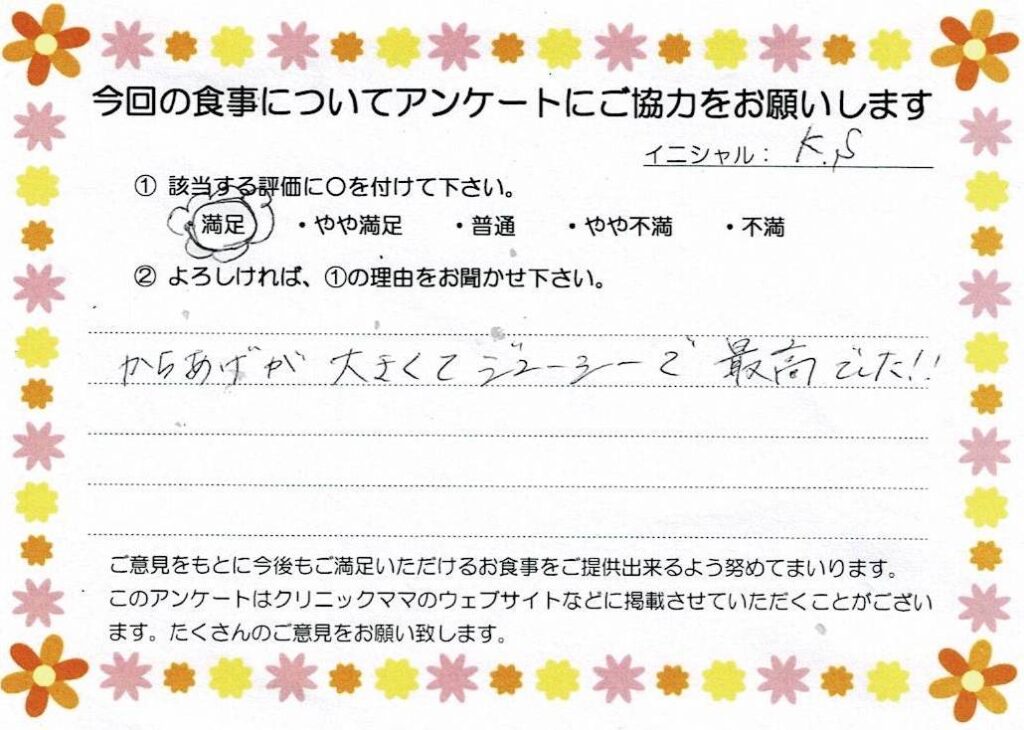 今回の食事についてアンケートにご協力をお願いします
イニシャル： K.S
① 該当する評価に〇を付けて下さい。
・満足 ・やや満足 ・普通 ・やや不満 ・不満
② よろしければ、①の理由をお聞かせ下さい。
からあげが 大きくてジューシーで 最高でした!!
ご意見をもとに今後もご満足いただけるお食事をご提供出来るよう努めてまいります。
このアンケートはクリニックママのウェブサイトなどに掲載させていただくことがござい
ます。たくさんのご意見をお願い致します。